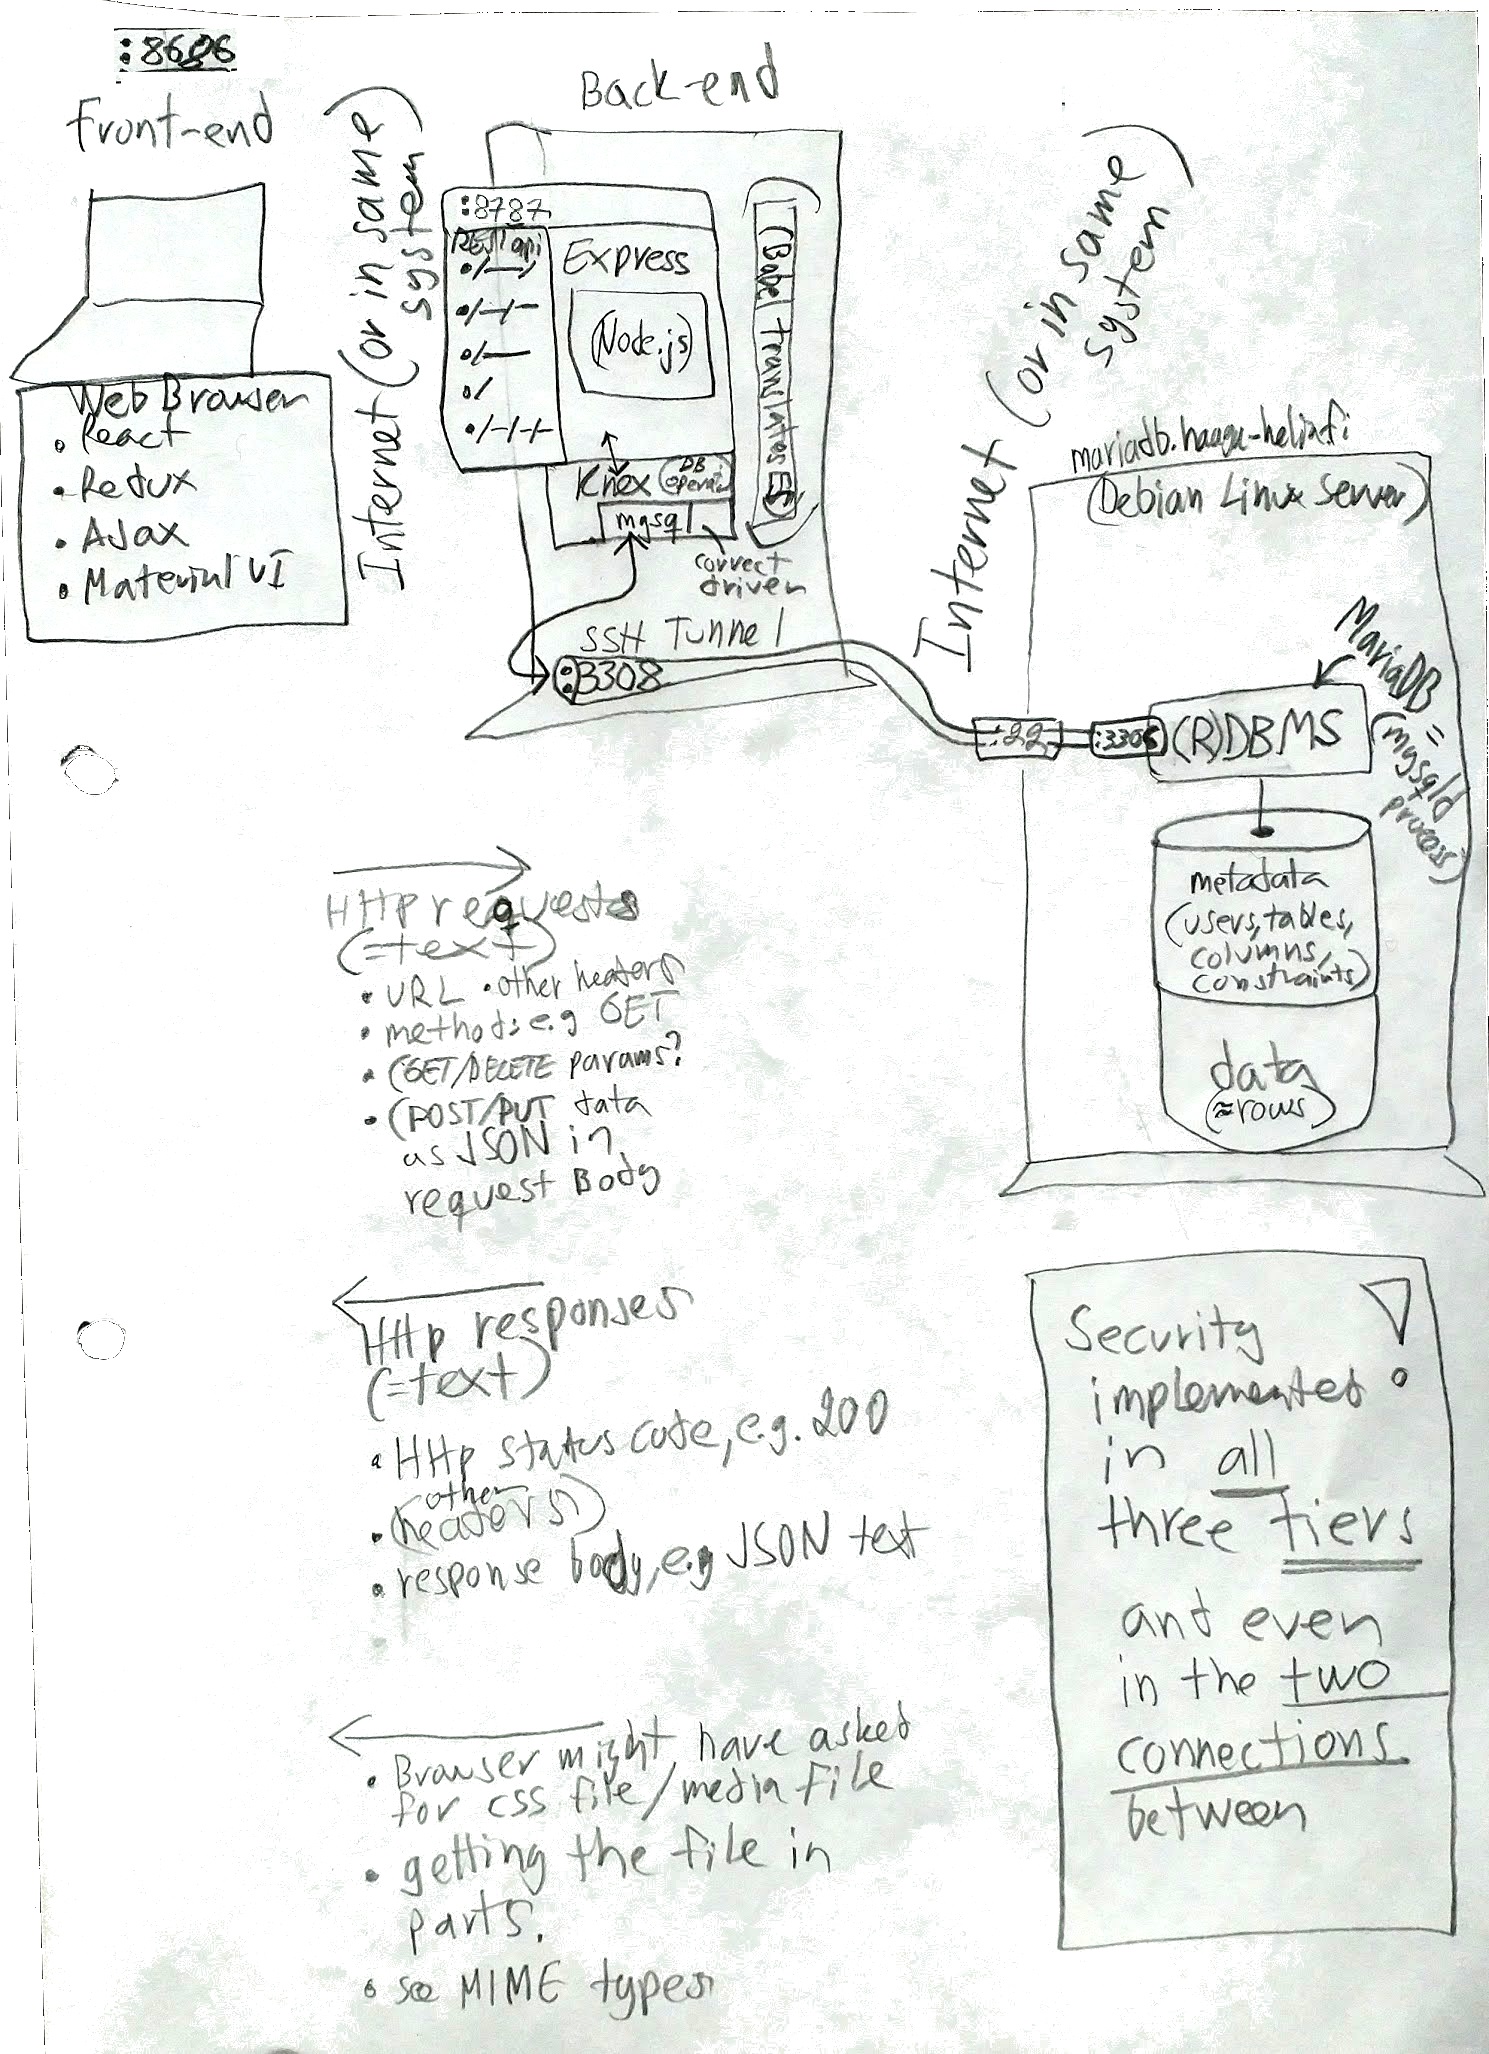 :8686
Front-end
Web Browser
• React
• Redux
• AJax
• Material UI
Internet (or in same
system)
Back-end
:8787
REST api
•/—/
•/—/—
•/——
•/
•/—/—/—
Express
(Node.js)
Knex
DB
mysql
correct
driver
(Babel translates ES)
SSH Tunnel
:3308
Internet (or in same
system)
mariadb.haaga-helia.fi
(Debian Linux Server)
:22
:3306
(R)DBMS
MariaDB =
(mysqld
process)
metadata
(users, tables,
columns,
constraints)
data
(≈rows)
HTTP requests
(=text)
• URL • other headers
• method: e.g GET
• (GET/DELETE params?
• (POST/PUT data
as JSON in
request Body
HTTP responses
(=text)
• HTTP status code, e.g. 200
other
• (headers)
• response body, e.g JSON text
• Browser might have asked
for css file/media file
• getting the file in
parts.
• see MIME types
Security
implemented
in all
three tiers
and even
in the two
connections
between